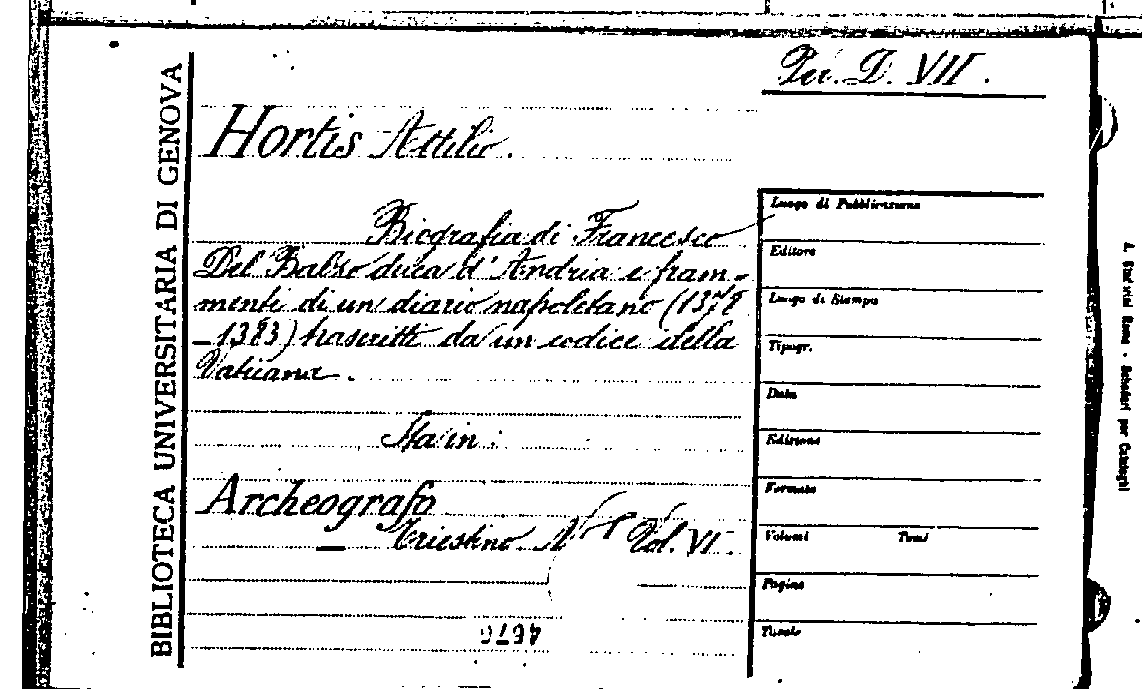 BIBLIOTECA UNIVERSITARIA DI GENOVA
Per. D. VII.
Hortis Attilio.
Biografia di Francesco
Del Balzo duca d'Andria e fram-
menti di un diario napoletano
trascritti da un codice della
Vaticana.
Sta in:
Archeografo
Triestino Vol. VI.
4676
Luogo di Pubblicazione
Editore
Luogo di Stampa
Tipogr.
Data
Edizione
Formato
Volumi Tomi
Pagine
Tavole
Roma - Schedari per Cataloghi